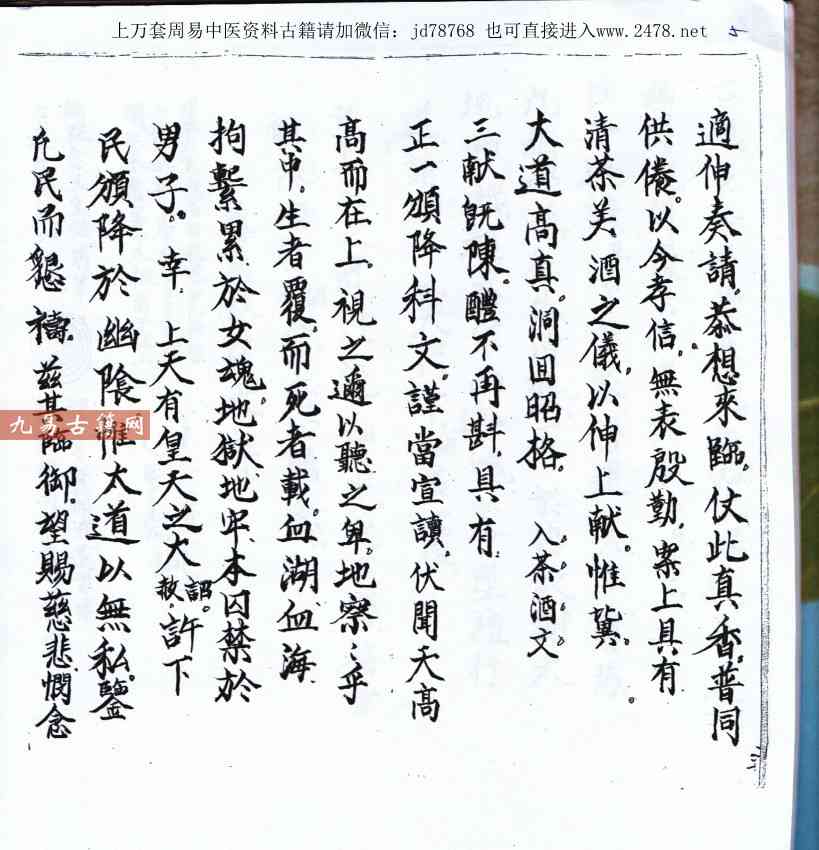 上万套周易中医资料古籍请加微信：jd78768 也可直接进入www.2478.net
適伸奏請。恭想來臨。仗此真香。普同
供養。以今孝信。無表殷勤。案上具有
清茶美酒之儀。以伸上献。惟冀。
大道高真。洞回昭格。入茶酒文
三献既陳。醴不再斟。具有
正一頒降科文。謹當宣讀。伏聞天高
高而在上。視之邇以聽之卑。地察〻乎
其中。生者覆。而死者載。血湖血海
拘繫累於女魂。地獄地牢。本囚禁於
男子。幸 上天有皇天之大赦詔。許下
民頒降於幽陰。惟大道以無私。鑒
凡民而懇禱。茲其臨御。望賜慈悲。憫念
九易古籍网